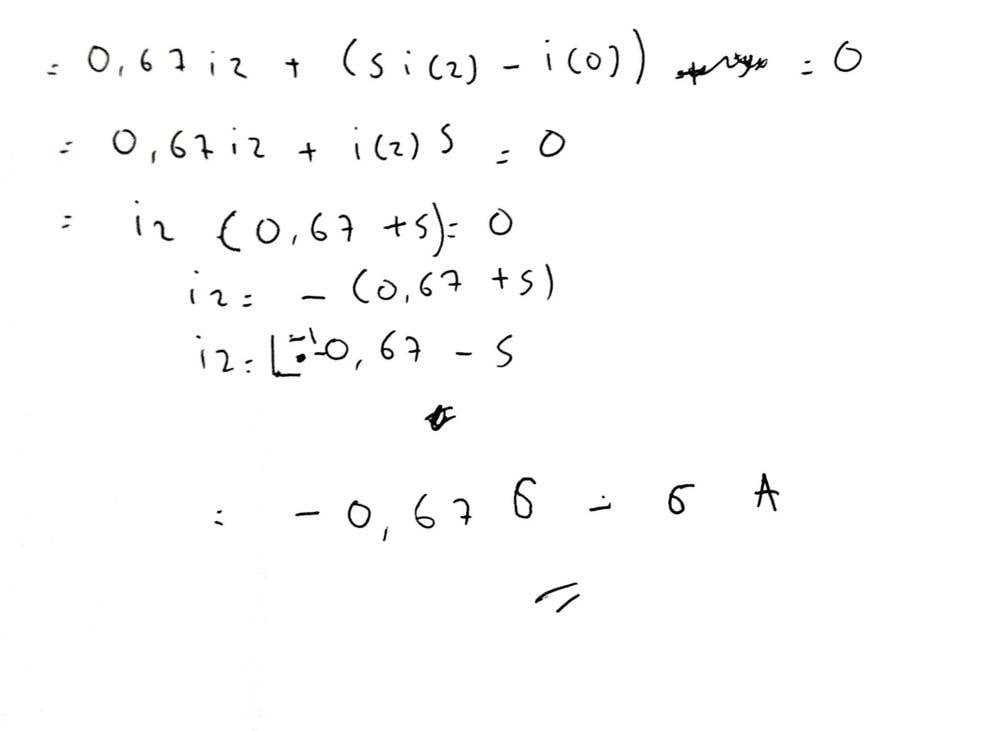 = 0,67 i2 + (s i(2) - i(0)) = 0
= 0,67 i2 + i(2) s = 0
= i2 (0,67 + s) = 0
i2 = - (0,67 + s)
i2 = -0,67 - s
= - 0,67 δ - δ A